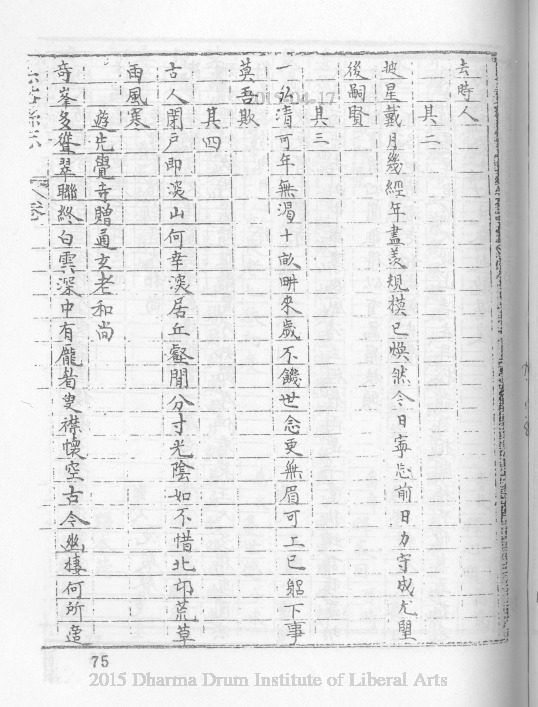 去時人
其二
披星戴月幾經年盡羨規模已煥然今日寧忘前日力守成尤望
後嗣賢
其三
一弘清可年無渴十畝畊來歲不饑世念更無眉可上已躬下事
莫吾欺
其四
古人閉戶即深山何幸深居丘壑間分寸光陰如不惜北邙荒草
雨風寒
遊先覺寺贈通玄老和尚
奇峯多聳翠聯終白雲深中有龐耆叟襟懷空古今幽棲何所造
卷
75
2015-04-17
2015 Dharma Drum Institute of Liberal Arts